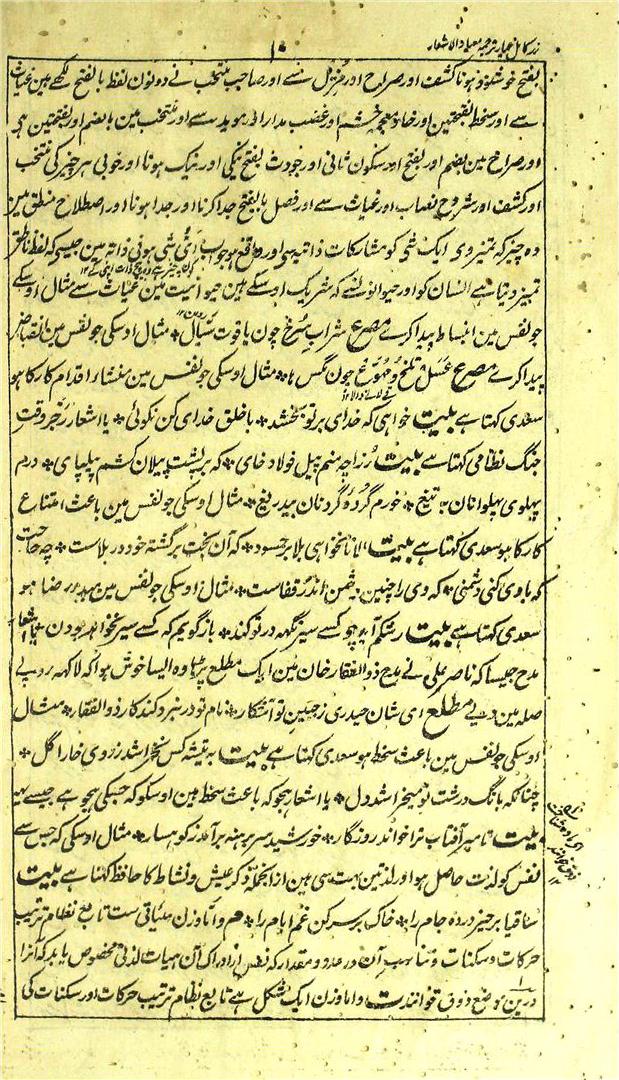 زر کامل عیار ترجمہ معیار الاشعار
۱۰
بفتح خوشنود ہونا کشف اور صراح اور مزیل سے اور صاحب منتخب نے دونون لفظ بالفتح لکھے ہین غیاث
سے اور سخط بفتحتین اور خاء معجمہ خشم اور غضب مدار اور موید سے اور منتخب مین بالضم اور بفتحتین ہی
اور صراح مین بضم اور بفتح اور سکون ثانی اور جودت بفتح نیکی اور نیک ہونا اور خوبی ہر چیز کی منتخب
اور کشف اور شروح نصاب اور غیاث سے اور فصل بالفتح جدا کرنا اور جدا ہونا اور اصطلاح منطق مین
وہ چیز کہ تمیز دی ایک شی کو مشارکات ذاتیہ سی اور واقع ہو جواب ای شی ہو فی ذاتہ مین جیسے کہ لفظ ناطق
تمیز دیتا ہے انسان کو اور حیوانو نسے کہ شریک اوسکے ہین حیوانیت مین غیاث سے مثال اوسکی
جو نفس مین انبساط پیدا کرے مصرع شراب سرخ چون یاقوت سیال * مثال اوسکی جو نفس مین انقباض
پیدا کرے مصرع عسل تلخ و مہوع چون مگس ہا * مثال اوسکی جو نفس مین منشاء اقدام کار کا ہو
سعدی کہتا ہے بیت خواہی کہ خدای بر تو بخشد * با خلق خدای کن نکوئی * یا اشعار رجز وقت
جنگ نظامی کہتا ہے بیت منم پیل فولاد خای * کہ بر پشت پیلان کشم پیلپای * درم
پہلوی پہلوانان بہ تیغ * خورم گردہ گردنان بیدریغ * مثال اوسکی جو نفس مین باعث امتناع
کار کا ہو سعدی کہتا ہے بیت الا تا نخواہی بلا بر حسود * کہ آن بخت برگشتہ خود در بلاست * چہ حاجت
کہ با وی کنی دشمنی * کہ وی را چنین دشمن اندر قفاست * مثال اوسکی جو نفس مین رضا ہو
سعدی کہتا ہے بیت رشکم آید چو کسے سیر نگہ در تو کند * باز گویم کہ کسے سیر نخواہد بودن یا اشعار
مدح جیسا کہ ناصر علی نے مدح ذوالفقار خان مین ایک مطلع پڑہا وہ ایسا خوش ہوا کہ لاکہہ روپے
صلہ مین دیے مطلع ای شان حیدری ز جبین تو آشکار * نام تو در نبرد کند کار ذوالفقار * مثال
اوسکی جو نفس مین باعث سخط ہو سعدی کہتا ہے بیت بہ تیشہ کس نخراشد ز روی خارا گل *
چنانکہ بانگ درشت تو میخراشد دل * یا اشعار ہجو کہ باعث سخط ہین اوسکو کہ جسکی ہجو ہے جیسے یہ
بیت تا میر آفتاب ترا خواند روزگار * خورشید سر برہنہ بر آمد ز کوہسار * مثال اوسکی کہ جس سے
نفس کو لذت حاصل ہو اور لذتین بہت سی ہین از انجملہ ذکر عیش و نشاط کا حافظ کہتا ہے بیت
ساقیا برخیز و در دہ جام را * خاک بر سر کن غم ایام را * ہم و اما وزن ہیأتی ست تابع نظام ترتیب
حرکات و سکنات و تناسب آن در عدد و مقدار کہ نفس از ادراک آن ہیأت لذتی مخصوص یابد کہ آنرا
درین موضع ذوق خوانند ت و اما وزن ایک شکل ہے تابع نظام ترتیب حرکات اور سکنات کی